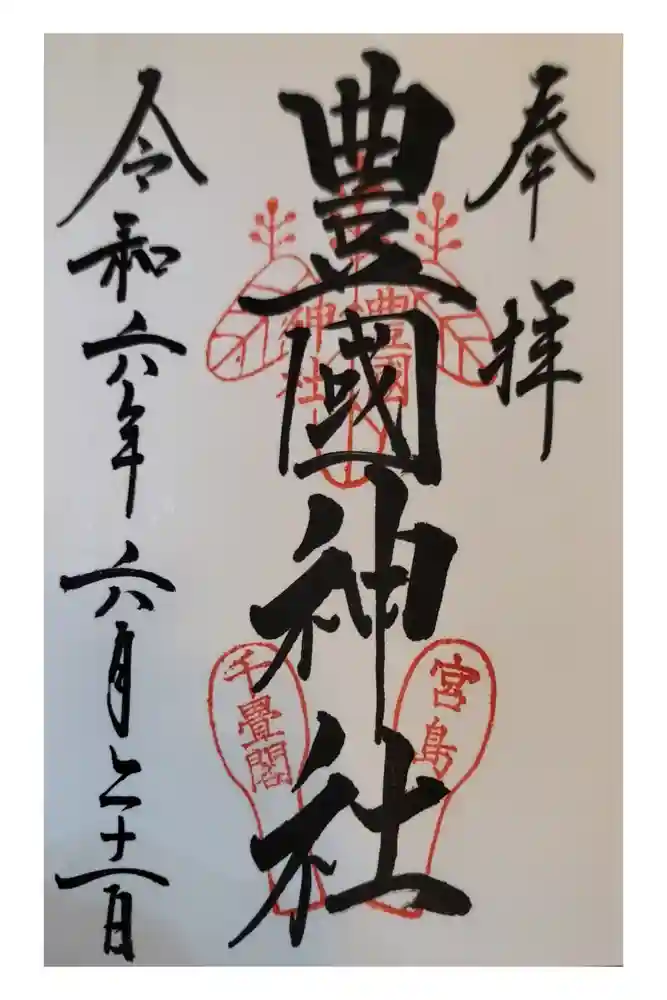 奉拝
豊國神社
豊国
神社
宮島
千畳閣
令和六年六月二十一日